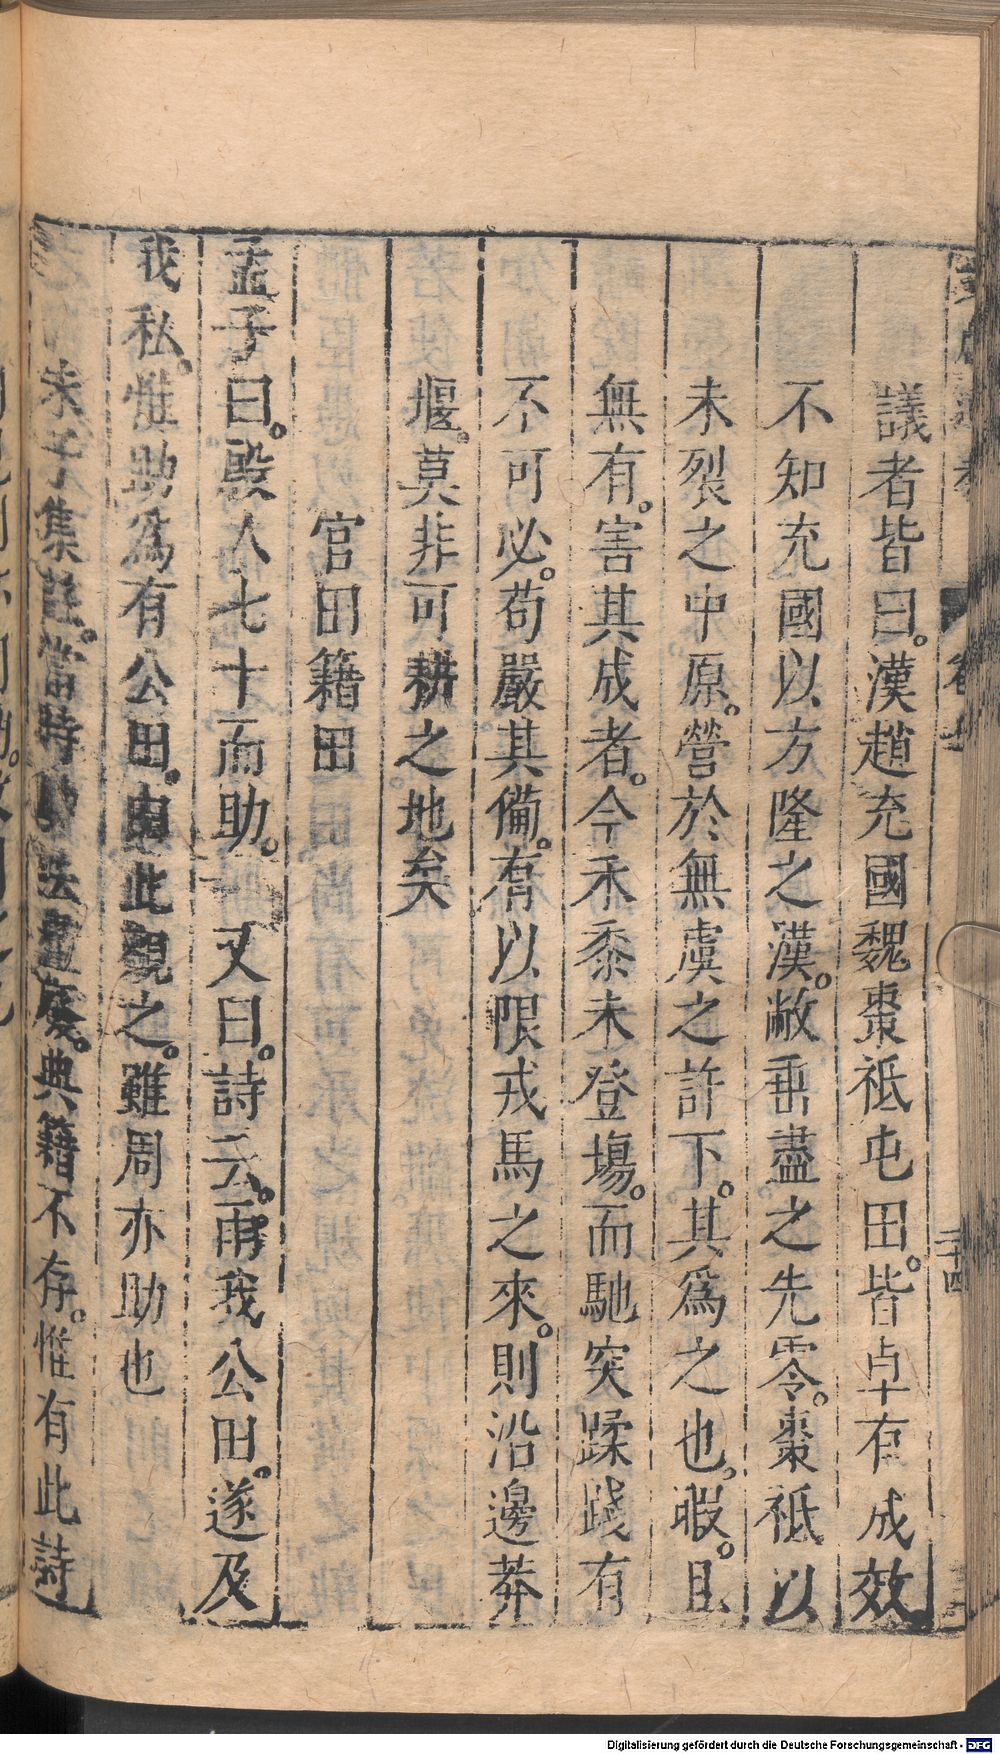 議者皆曰。漢趙充國魏棗祗屯田。皆卓有成效
不知充國以方隆之漢。敝垂盡之先零。棗祗以
未裂之中原。營於無虞之許下。其爲之也。暇。且
無有。害其成者。今禾黍未登場。而馳突蹂踐有
不可必。苟嚴其備。有以限戎馬之來。則沿邊莽
堰。莫非可耕之地矣
官田籍田
孟子曰。殷人七十而助。 又曰。詩云。雨我公田。遂及
我私。惟助爲有公田。由此觀之。雖周亦助也
朱子集註。當時助法盡廢。典籍不存。惟有此詩
二十四
Digitalisierung gefördert durch die Deutsche Forschungsgemeinschaft - DFG